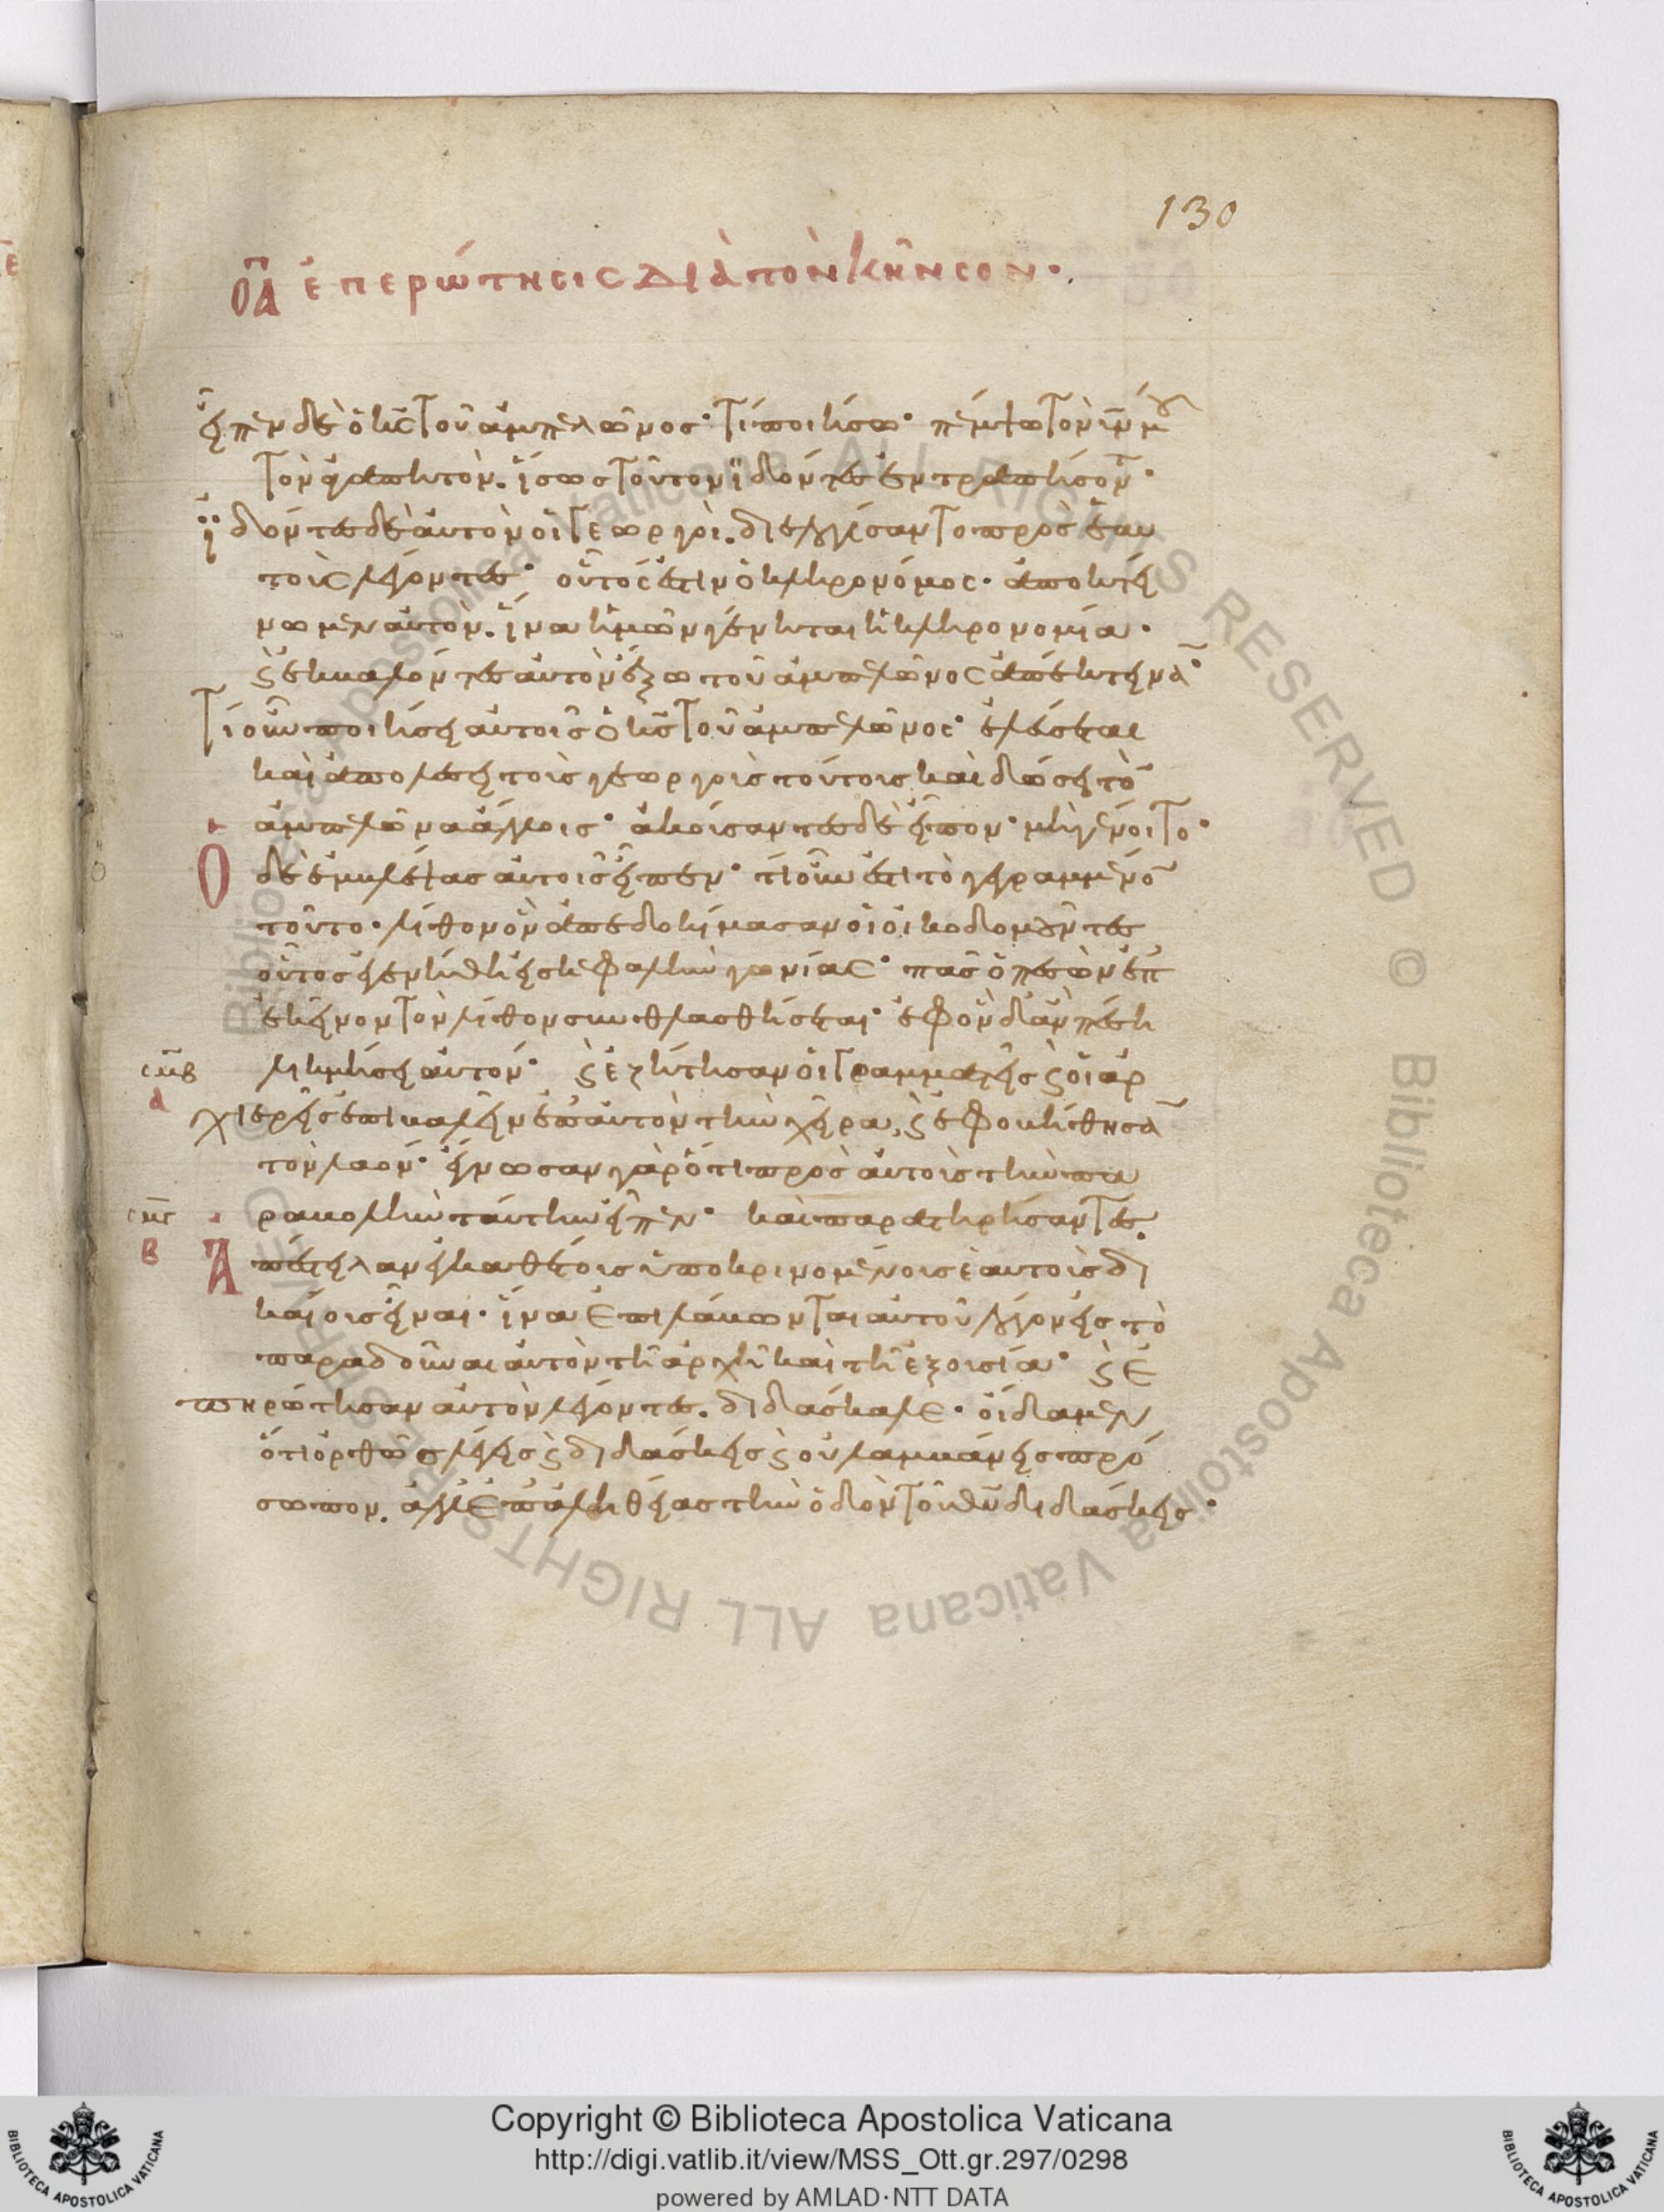 130
ΟΑ ἐπερώτησις διὰ τὸν κῆνσον·
εἶπεν δὲ ὁ κ̅ς̅ τοῦ ἀμπελῶνος· τί ποιήσω· πέμψω τὸν υ̅ν̅ μου
τὸν ἀγαπητὸν. ἴσως τοῦτον ϊδόντες ἐντραπήσον̅·
ϊδόντες δὲ αὐτὸν οἱ γεωργοὶ. διελογίσαντο πρὸς ἑαυ
τοὺς λέγοντες· οὗτός ἐστιν ὁ κληρονόμος· ἀποκτεί
νωμεν αὐτὸν. ἵνα ἡμῶν γένηται ἡ κληρονομία·
ϛ ἐκβαλόντες αὐτὸν ἔξω τοῦ ἀμπελῶνος ἀπέκτειναν̅·
Τί οὖν ποιήσει αὐτοῖς ὁ κ̅ς̅ τοῦ ἀμπελῶνος· ἐλεύσεται
καὶ ἀπολέσει τοὺς γεωργοὺς τούτους καὶ δώσει τὸ̅
ἀμπελῶνα ἄλλοις· ἀκούσαντες δὲ εἶπον· μὴ γένοιτο·
Ο δὲ ἐμβλέψας αὐτοῖς εἶπεν· τί οὖν ἐστι τὸ γεγραμμένο̅
τοῦτο· λίθον ὃν ἀπεδοκίμασαν οἱ οἰκοδομοῦντες
οὗτος ἐγενήθη εἰς κεφαλὴν γωνίας· πᾶς ὁ πεσὼν ἐπ
ἐκεῖνον τὸν λίθον συνθλασθήσεται· ἐφ ὃν δ ἂν πέσῃ
λικμήσει αὐτόν· ϛ ἐζήτησαν οἱ γραμματεῖς ϛ οἱ ἀρ
χιερεῖς ἐπιβαλεῖν ἐπ αὐτὸν τὴν χεῖρα, ϛ ἐφοβήθησα̅
τὸν λαόν· ἔγνωσαν γὰρ ὅτι πρὸς αὐτοὺς τὴν πα
ραβολὴν ταύτην εἶπεν· καὶ παρατηρήσαντες.
Ἀπέστειλαν ἐγκαθέτους ὑποκρινομένους ἑαυτοὺς δι
καίους εἶναι· ἵνα ἐπιλάβωνται αὐτοῦ λόγον εἰς τὸ
παραδοῦναι αὐτὸν τῇ ἀρχῇ καὶ τῇ ἐξουσίᾳ· ϛ ἐ
πηρώτησαν αὐτὸν λέγοντες. διδάσκαλε· οἴδαμεν
ὅτι ὀρθῶς λέγεις ϛ διδάσκεις ϛ οὐ λαμβάνεις πρό
σωπον. ἀλλ ἐπ ἀληθείας τὴν ὁδὸν τοῦ θ̅υ̅ διδάσκεις·
σμβ
α
σμγ
β
Copyright © Biblioteca Apostolica Vaticana
http://digi.vatlib.it/view/MSS_Ott.gr.297/0298
powered by AMLAD·NTT DATA